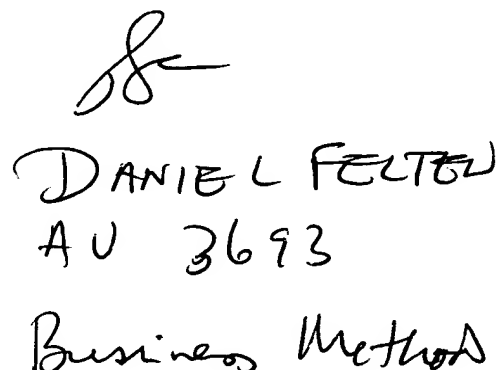 DANIEL FELTEN
AU 3693
Business Methods